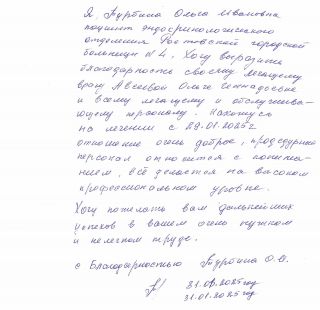 Я, Турбина Ольга Ивановна
пациент эндокринологического
отделения Ростовской городской
больницы №4. Хочу выразить
благодарность своему лечащему
врачу Авсеевой Ольге Геннадьевне
и всему лечащему и обслужива-
ющему персоналу. Нахожусь
на лечении с 29.01.2025г
отношение очень доброе, процедурный
персонал относится с понима-
нием, всё делается на высоком
профессиональном уровне.
Хочу пожелать вам дальнейших
успехов в вашем очень нужном
и нелегком труде.
с Благодарностью Турбина О.И.
31.01.2025 год